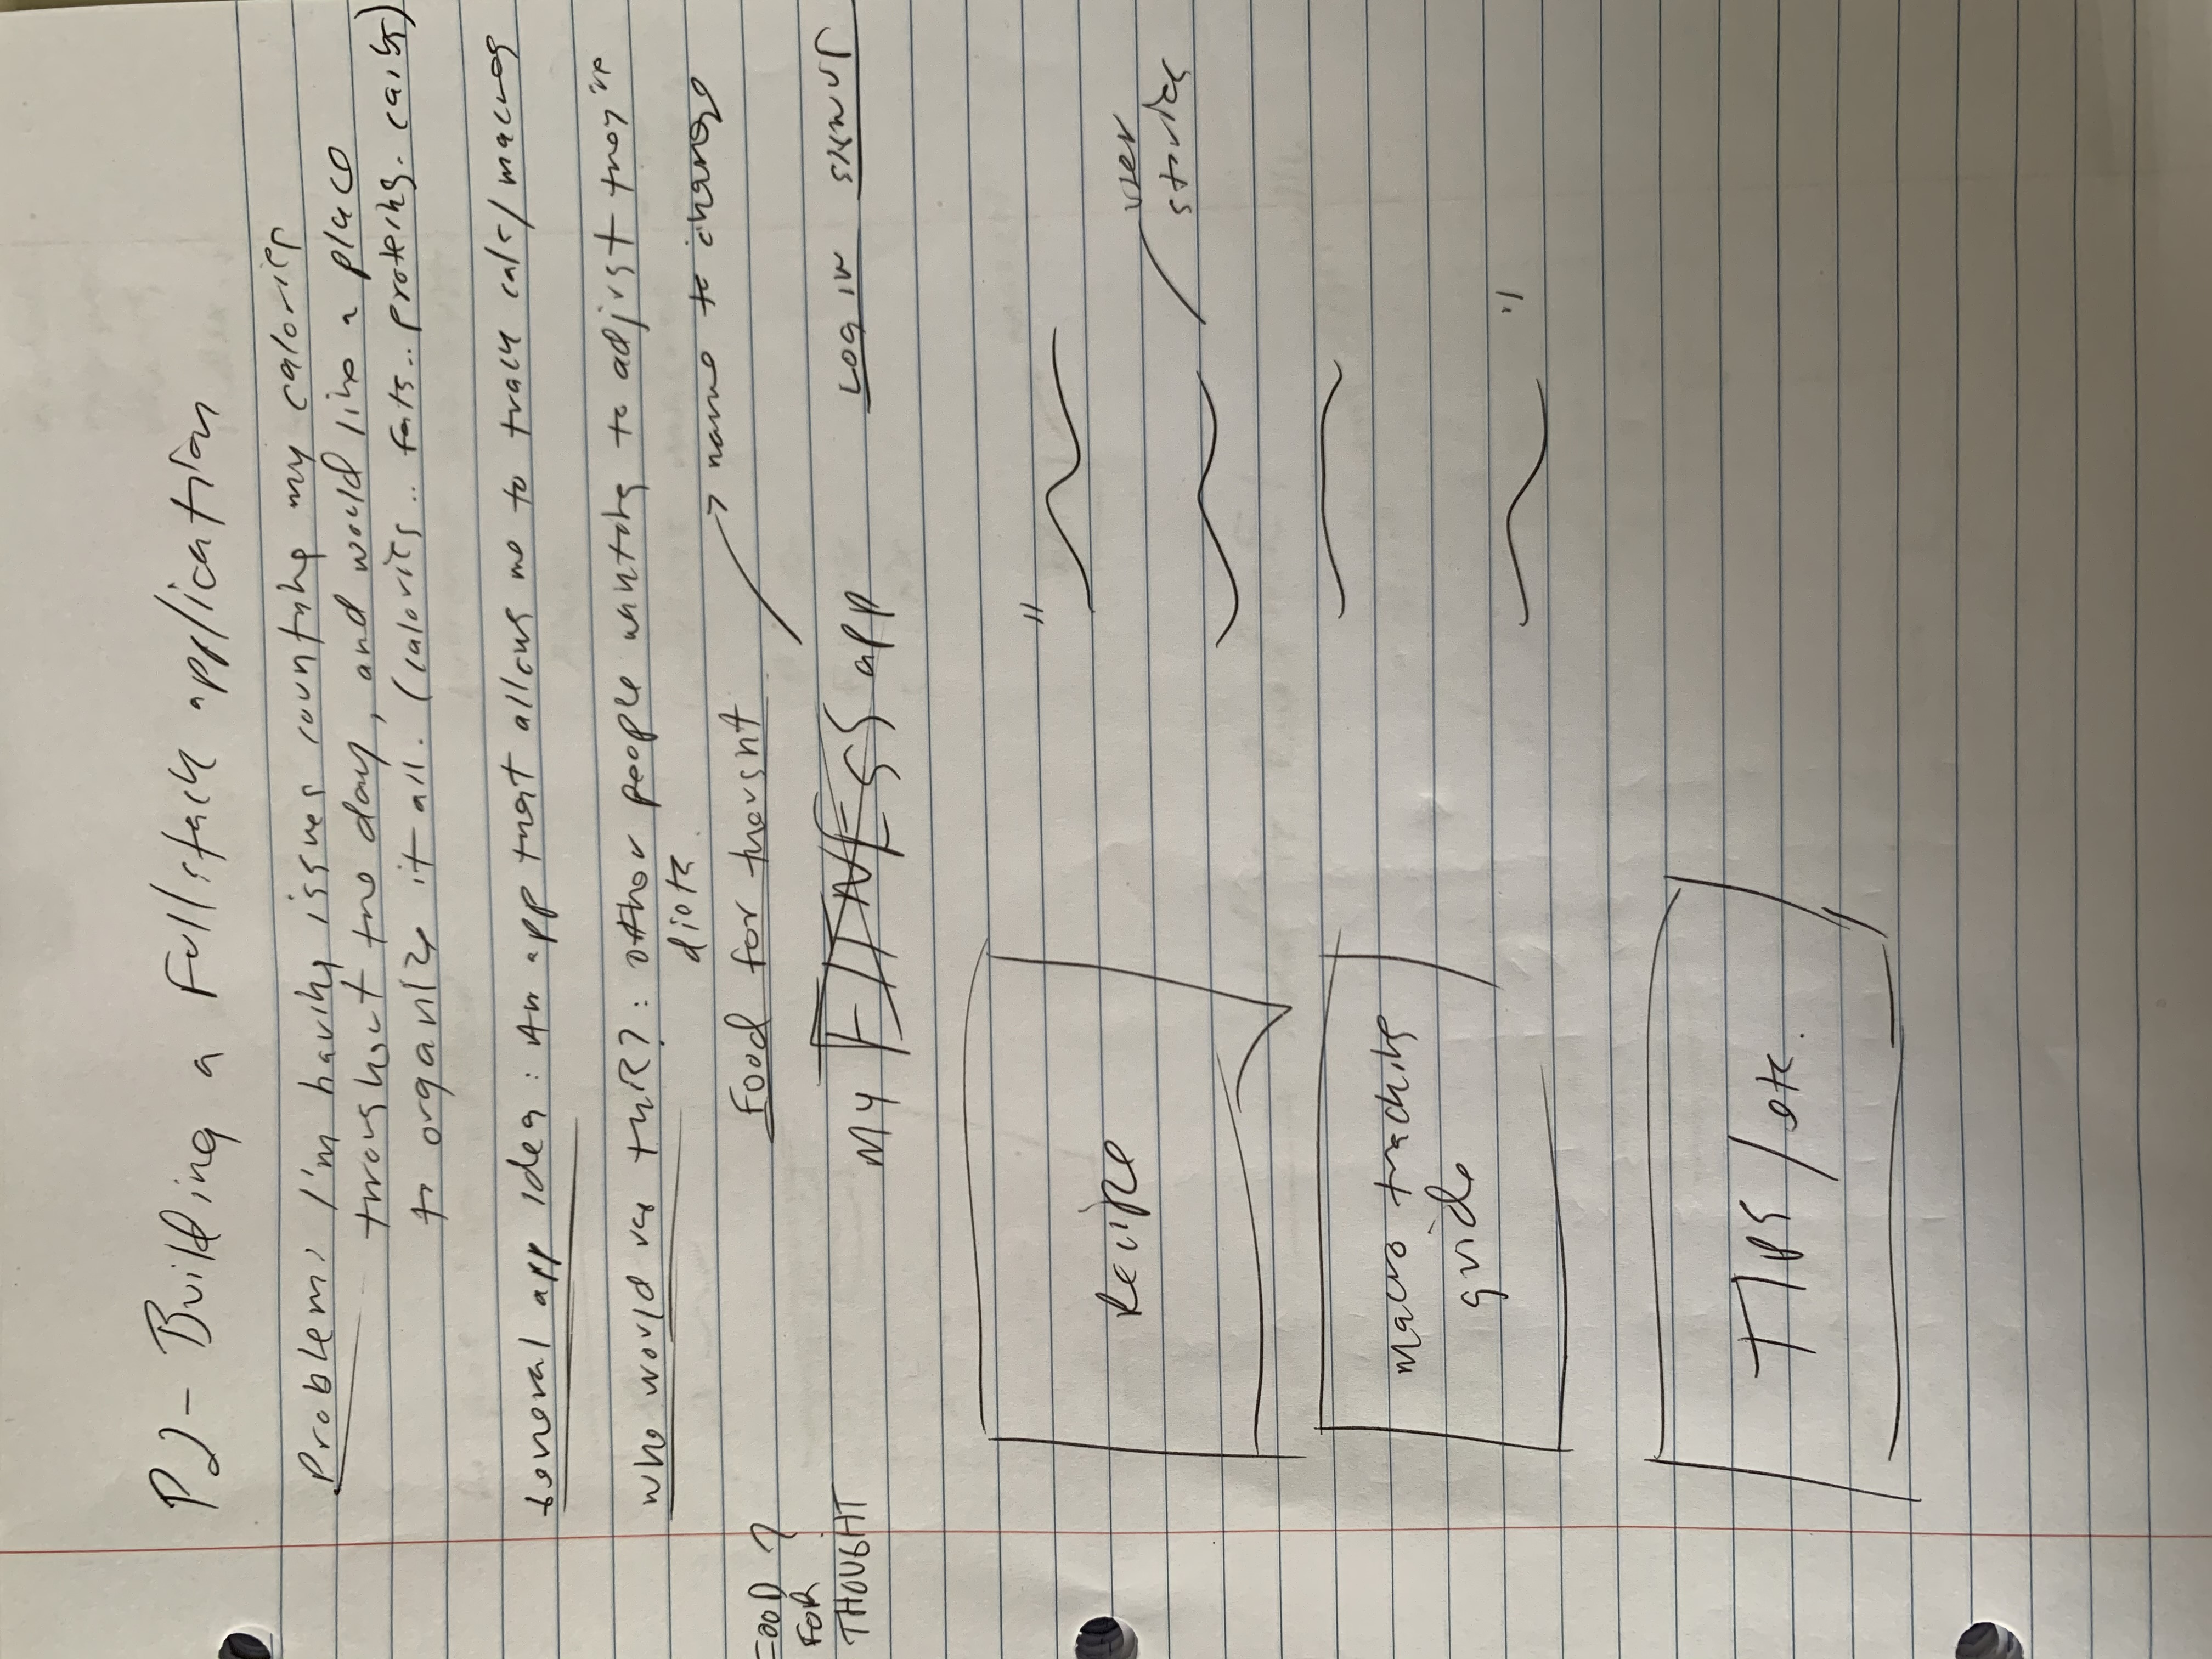 P2 - Building a Fullstack application
Problem: I'm having issues counting my calories
throughout the day, and would like a place
to organize it all. (calories .. fats .. proteins. carbs)
General app idea: An app that allows me to track cals/macros
who would use this?: other people wanting to adjust they're
diets.
name to change
Food for thought
FOOD ?
FOR
THOUGHT
My FITNESS app
LOG IN SIGN UP
"
Recipe
user
stories
macro tracking
guide
"
TIPS / etc.